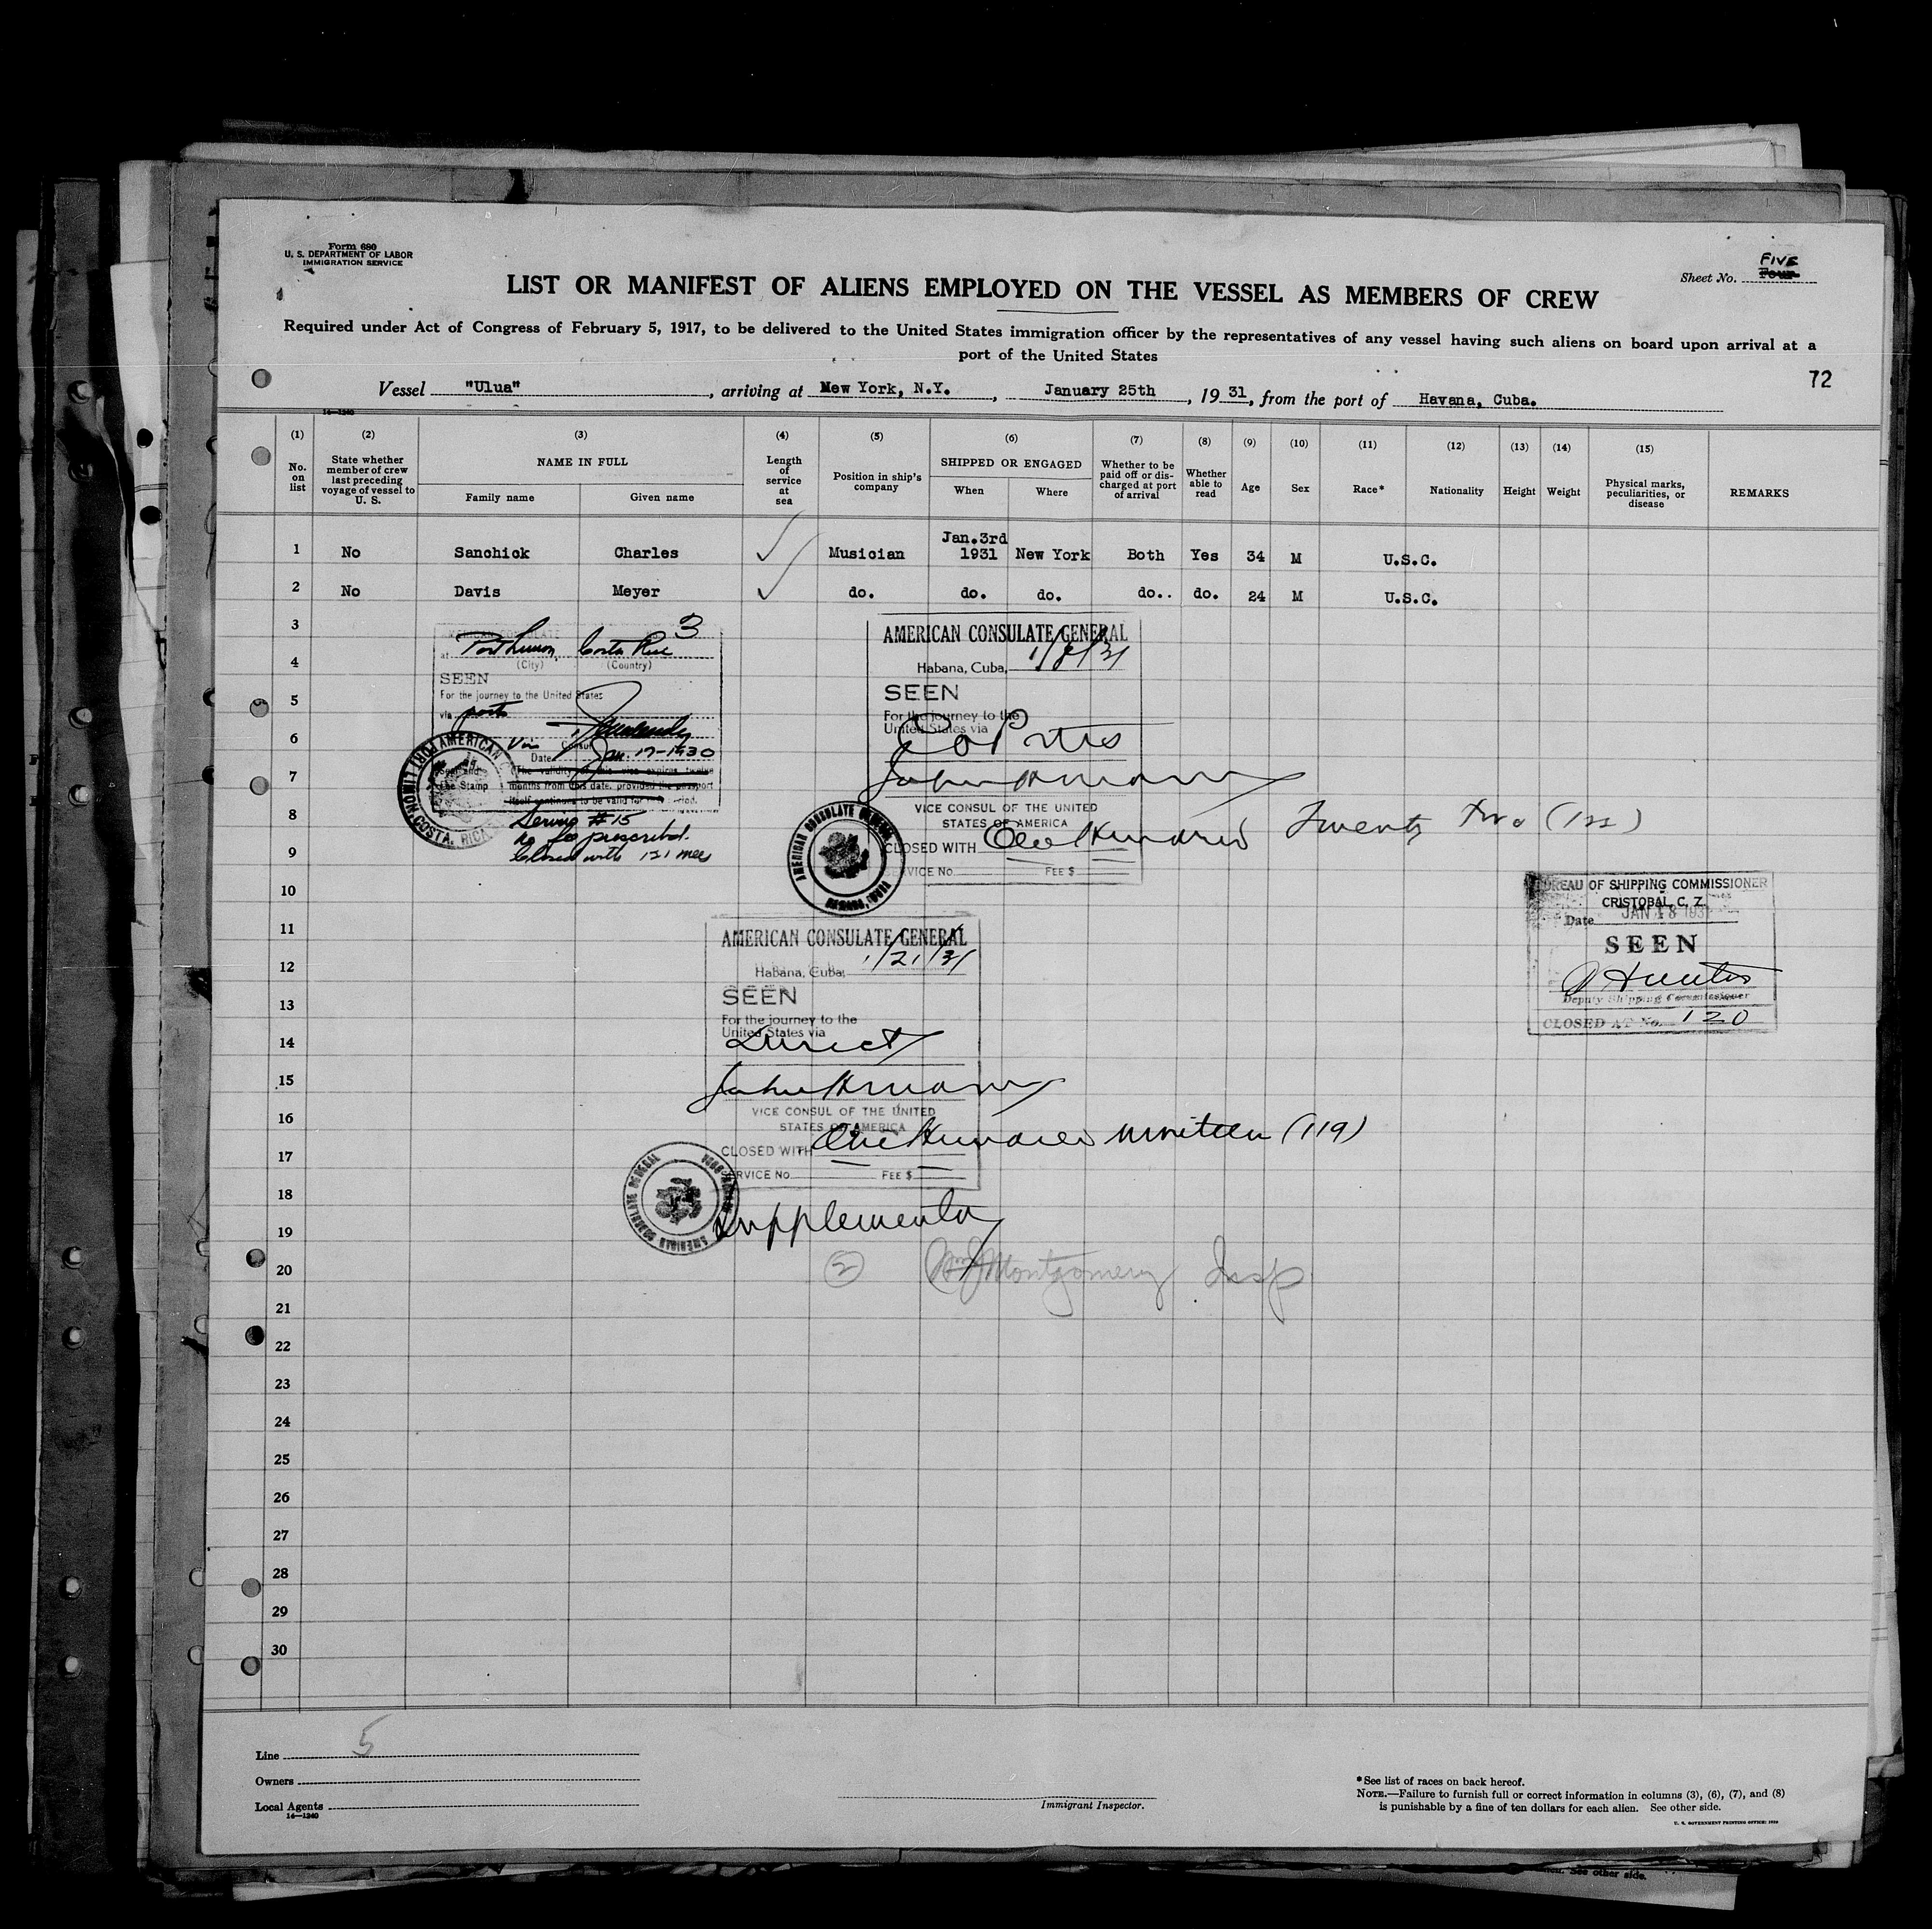 Form 680
U. S. DEPARTMENT OF LABOR
IMMIGRATION SERVICE
Sheet No. Five
Four
LIST OR MANIFEST OF ALIENS EMPLOYED ON THE VESSEL AS MEMBERS OF CREW
Required under Act of Congress of February 5, 1917, to be delivered to the United States immigration officer by the representatives of any vessel having such aliens on board upon arrival at a
port of the United States
72
Vessel "Ulua", arriving at New York, N.Y., January 25th, 1931, from the port of Havana, Cuba.
14—1240
(1) (2) (3) (4) (5) (6) (7) (8) (9) (10) (11) (12) (13) (14) (15)
No. on list
State whether member of crew last preceding voyage of vessel to U. S.
NAME IN FULL
Family name Given name
Length of service at sea
Position in ship's company
SHIPPED OR ENGAGED
When Where
Whether to be paid off or discharged at port of arrival
Whether able to read
Age
Sex
Race*
Nationality
Height
Weight
Physical marks, peculiarities, or disease
REMARKS
1 No Sanchick Charles ✓ Musician Jan.3rd 1931 New York Both Yes 34 M U.S.C.
2 No Davis Meyer ✓ do. do. do. do.. do. 24 M U.S.C.
3
4
5
6
7
8
9
10
11
12
13
14
15
16
17
18
19
20
21
22
23
24
25
26
27
28
29
30
3
AMERICAN CONSULATE
at Port Limon, Costa Rica
(City) (Country)
SEEN
For the journey to the United States
via ports
Vice Consul
Date Jan. 17-1930
The validity of this visa expires twelve
months from this date, provided the passport
itself continues to be valid for period.
Fee Stamp
AMERICAN
PORT LIMON, COSTA RICA
Service #15
no fee prescribed.
Closed with 121 men
AMERICAN CONSULATE GENERAL
Habana, Cuba, 1/8/31
SEEN
For the journey to the
United States via
VICE CONSUL OF THE UNITED
STATES OF AMERICA
CLOSED WITH One Hundred Twenty Two (122)
SERVICE No. FEE $
AMERICAN CONSULATE GENERAL
HABANA, CUBA
BUREAU OF SHIPPING COMMISSIONER
CRISTOBAL, C. Z.
Date JAN 18 1931
SEEN
Hunter
Deputy Shipping Commissioner
CLOSED AT No. 120
AMERICAN CONSULATE GENERAL
Habana, Cuba, 1/21/31
SEEN
For the journey to the
United States via
Direct
VICE CONSUL OF THE UNITED
STATES OF AMERICA
CLOSED WITH One Hundred Nineteen (119)
SERVICE No. FEE $
AMERICAN CONSULATE GENERAL
Supplementary
2 Montgomery Insp
Line 5
Owners
Local Agents
14—1240
Immigrant Inspector.
*See list of races on back hereof.
NOTE.—Failure to furnish full or correct information in columns (3), (6), (7), and (8)
is punishable by a fine of ten dollars for each alien. See other side.
U. S. GOVERNMENT PRINTING OFFICE:
See other side.